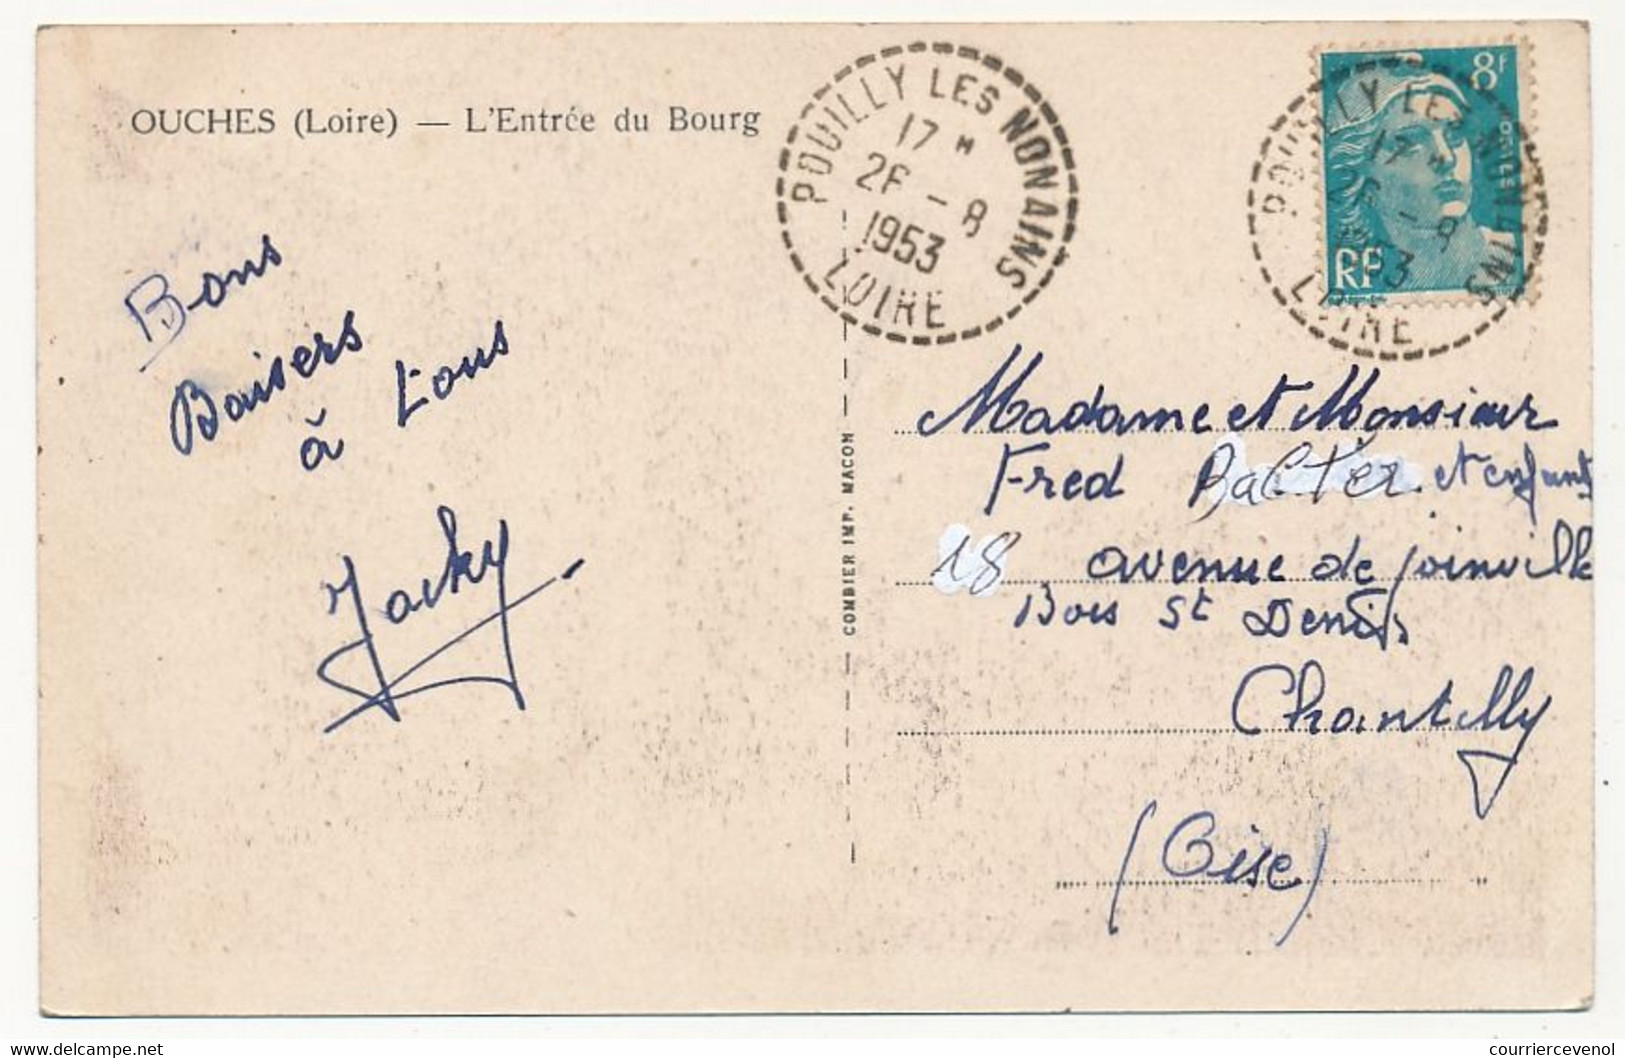 OUCHES (Loire) — L'Entrée du Bourg
POUILLY LES NONAINS
17 H
26 - 8
1953
LOIRE
8F
POSTES
RF
POUILLY LES NONAINS
17 H
26 - 8
LOIRE
Bons
Baisers
à tous
Jacky
COMBIER IMP. MACON
Madame et Monsieur
Fred et enfants
18 avenue de joinville
Bois St Denis
Chantilly
(Oise)
https://www.delcampe.net
courriercevenol